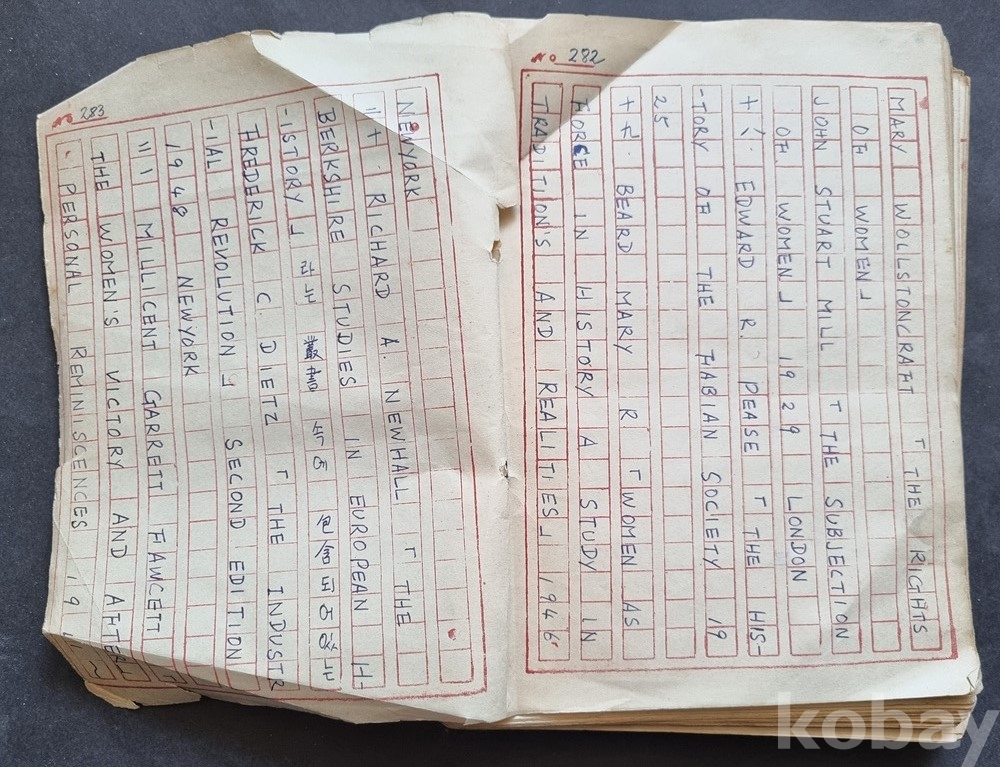 No 282
MARY WOLLSTONCRAFT 「THE RIGHTS
OF WOMEN」
JOHN STUART MILL 「THE SUBJECTION
OF WOMEN」 1929 LONDON
十八. EDWARD R. PEASE 「THE HIS-
-TORY OF THE FABIAN SOCIETY 19
25
十九. BEARD MARY R 「WOMEN AS
FORCE IN HISTORY A STUDY IN
TRADITION'S AND REALITIES」 1946.
No 283
NEWYORK
二十. RICHARD A. NEWHALL 「THE
BERKSHIRE STUDIES IN EUROPEAN H-
-ISTORY」 라는 叢書 속에 包含되어있는
FREDERICK C. DIETZ 「THE INDUSTR
-IAL REVOLUTION」 SECOND EDITION
1948 NEWYORK
MILLICENT GARRETT FAWCETT
THE WOMEN'S VICTORY AND AFTER
PERSONAL REMINISCENCES 19
kobay